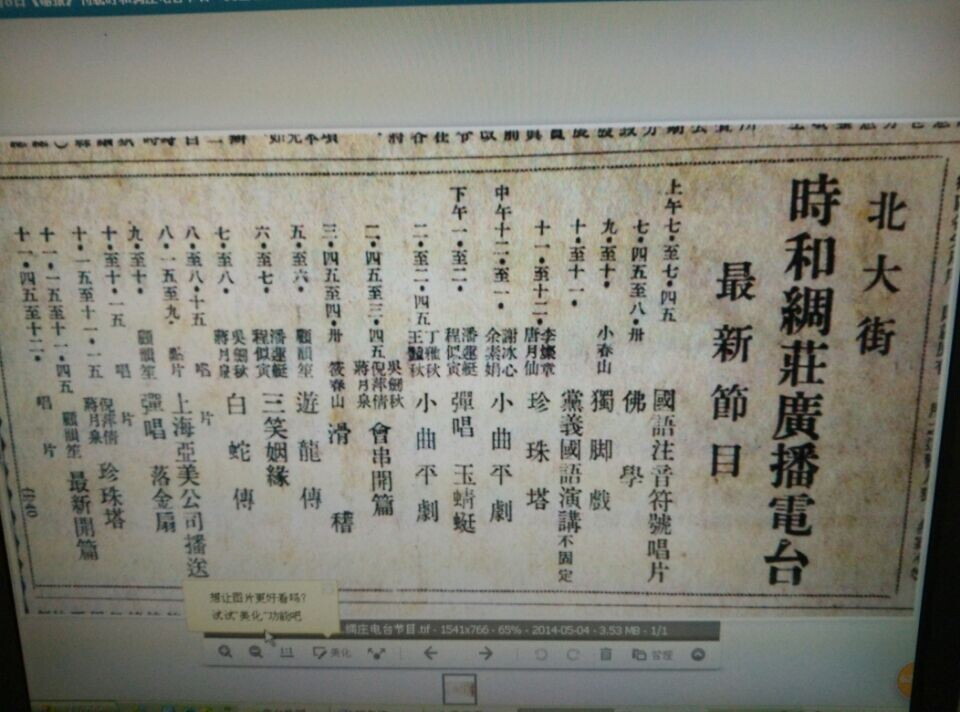 北大街
時和綢莊廣播電台
最新節目
上午七•至七•四五 國語注音符號唱片
七•四五至八•卅 佛學
九•至十• 小春山 獨脚戲
十•至十一• 黨義國語演講不固定
十一•至十二• 李燦章 唐月仙 珍珠塔
中午十二•至一• 謝冰心 余素娟 小曲平劇
下午一•至二• 潘蓮艇 程似寅 彈唱 玉蜻蜓
二•至二•四五 丁雅秋 王豔秋 小曲平劇
二•四五至三•四五 吳劍秋 倪萍倩 蔣月泉 會串開篇
三•四五至四•卅 筱春山 滑稽
五•至六• 顧韻笙 遊龍傳
六•至七• 潘蓮艇 程似寅 三笑姻緣
七•至八• 吳劍秋 蔣月泉 白蛇傳
八•至八•十五 唱片
八•一五至九• 點片 上海亞美公司播送
九•至十• 顧韻笙 彈唱 落金扇
十•至十•一五 唱片
十•一五至十一•一五 倪萍倩 蔣月泉 珍珠塔
十一•一五至十一•四五 顧韻笙 最新開篇
十一•四五至十二• 唱片
想让图片更好看吗?
试试"美化"功能吧
绸庄电台节目.tif - 1541x766 - 65% - 2014-05-04 - 3.53 MB - 1/1
1:1 美化 管理